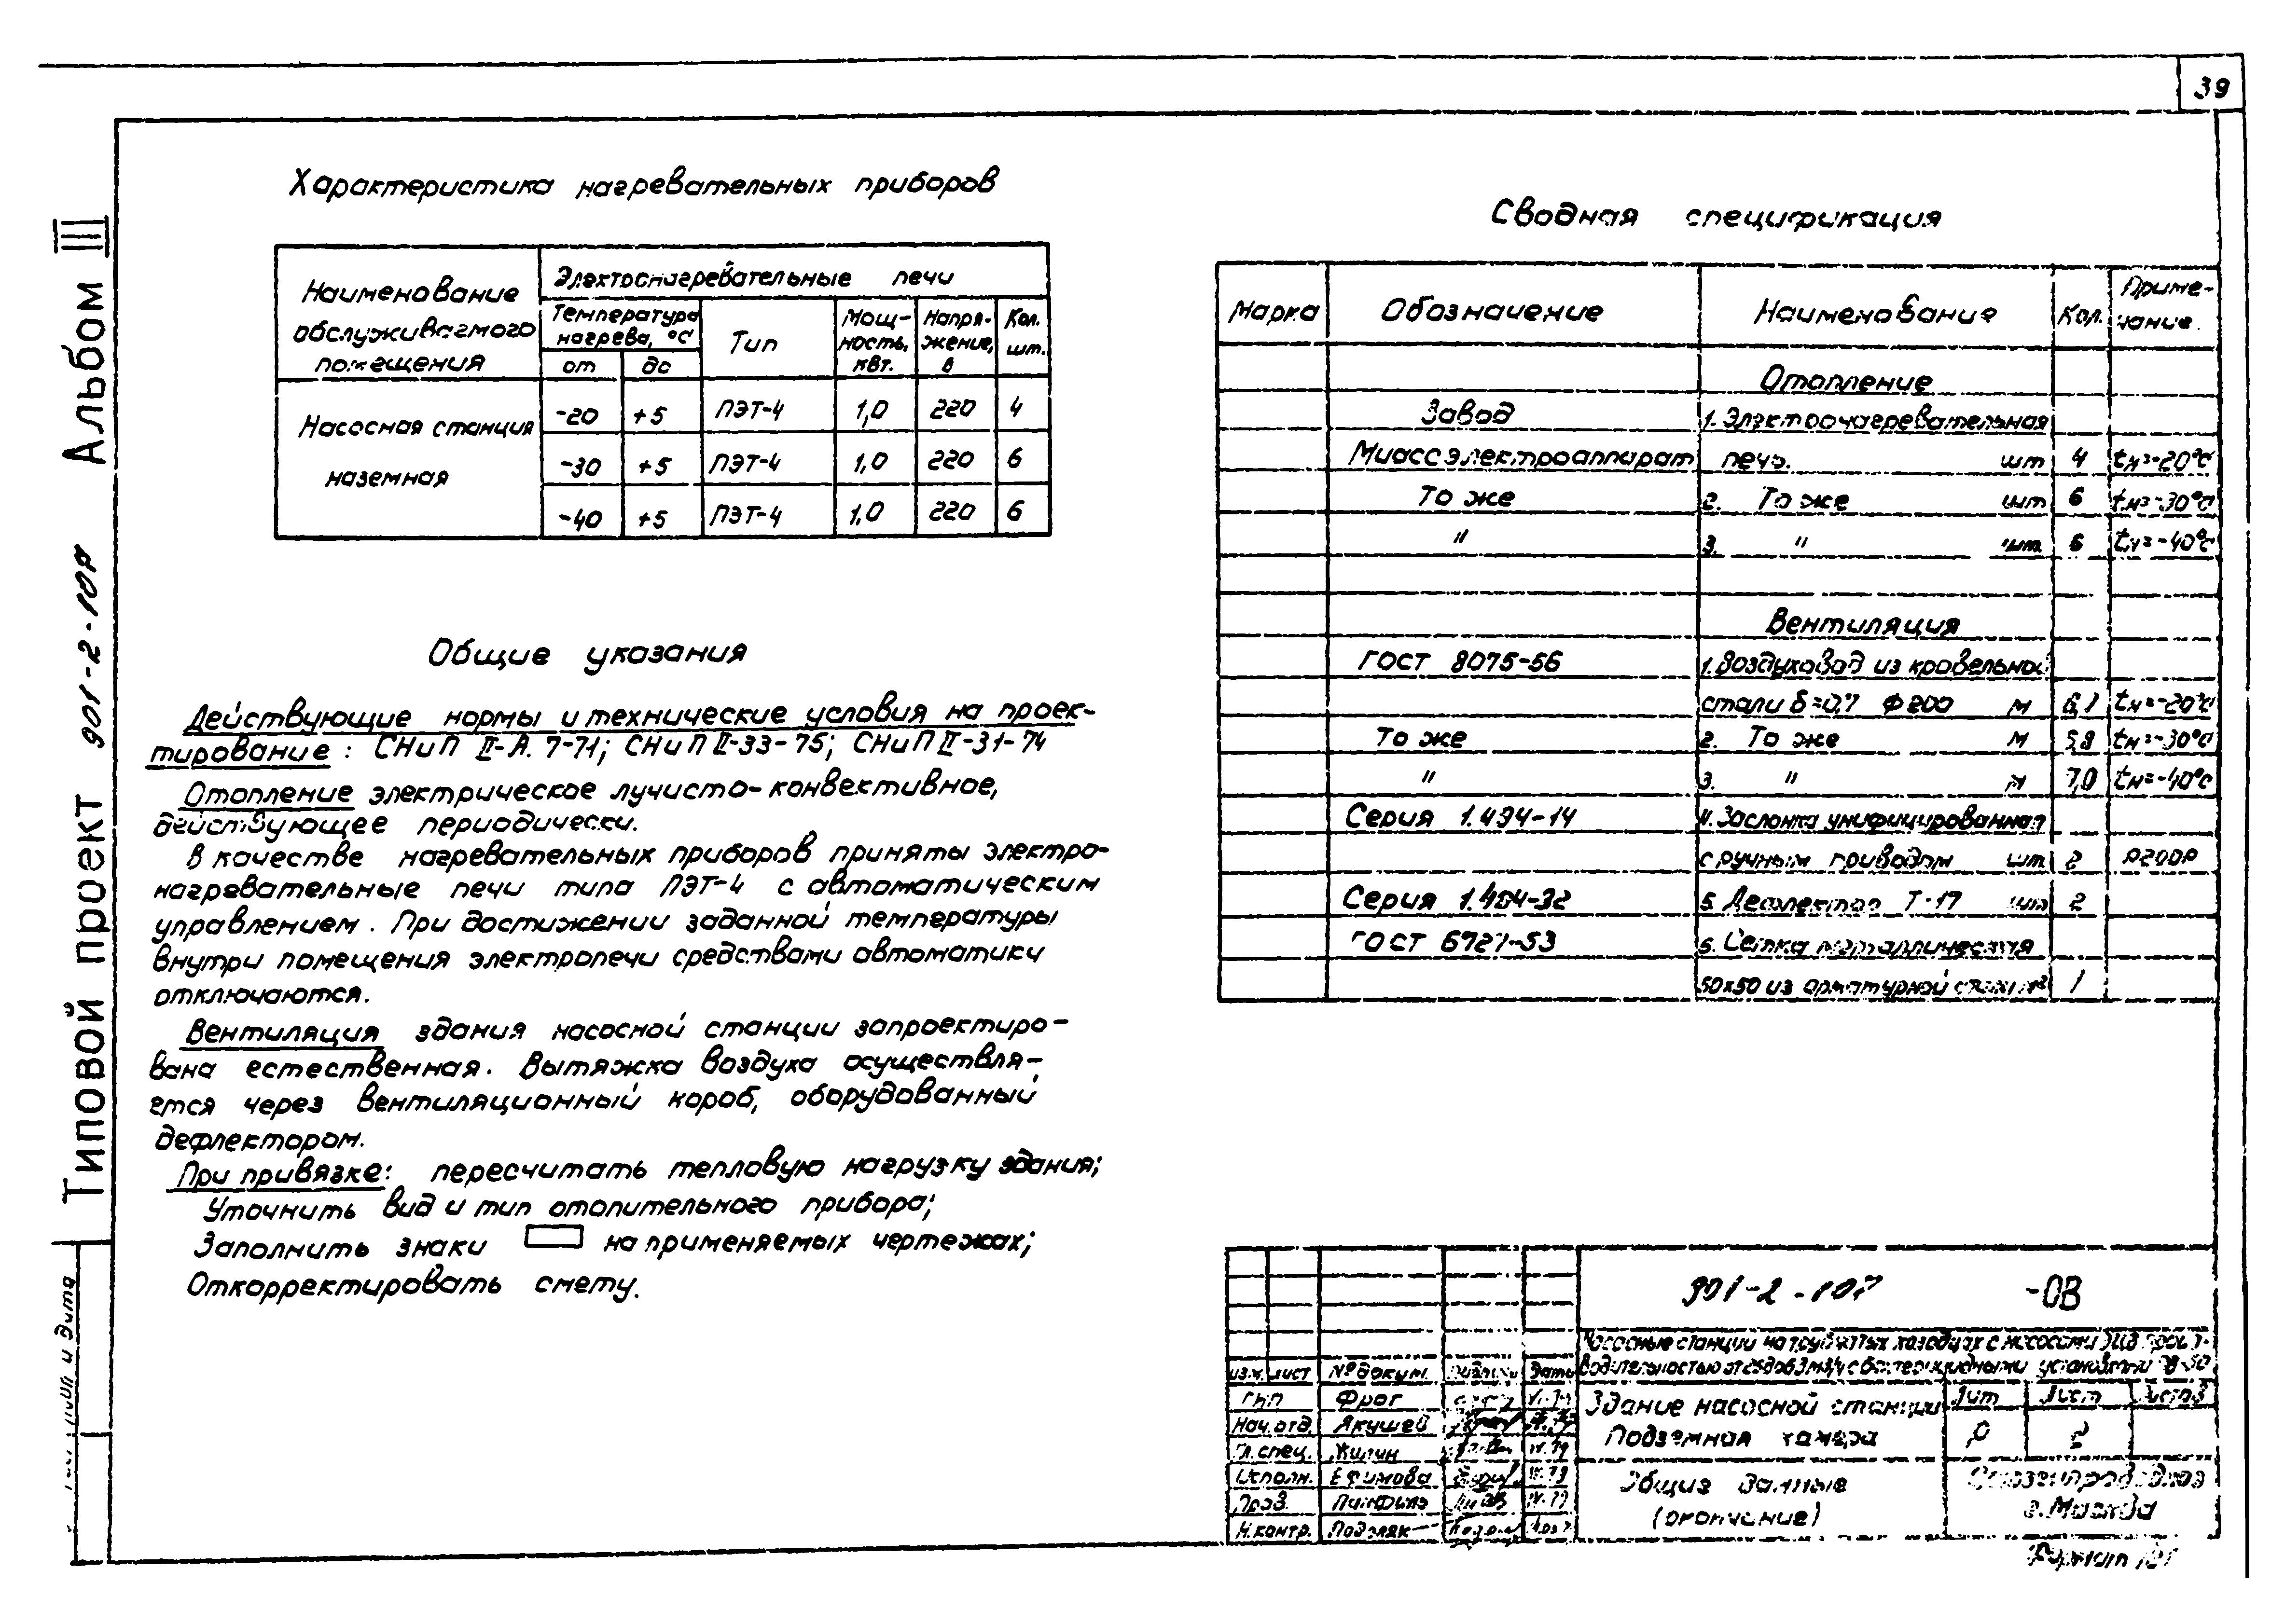 39
Альбом III
Типовой проект 901-2-10
Характеристика нагревательных приборов
Наименование
обслуживаемого
помещения
Электронагревательные печи
Температура
нагрева, °С
от до
Тип
Мощ-
ность,
квт.
Напря-
жение,
в
Кол.
шт.
Насосная станция
наземная
-20 +5 ПЭТ-4 1,0 220 4
-30 +5 ПЭТ-4 1,0 220 6
-40 +5 ПЭТ-4 1,0 220 6
Общие указания
Действующие нормы и технические условия на проек-
тирование: СНиП II-А. 7-71; СНиП II-33-75; СНиП II-31-74
Отопление электрическое лучисто-конвективное,
действующее периодически.
В качестве нагревательных приборов приняты электро-
нагревательные печи типа ПЭТ-4 с автоматическим
управлением. При достижении заданной температуры
внутри помещения электропечи средствами автоматики
отключаются.
Вентиляция здания насосной станции запроектиро-
вана естественная. Вытяжка воздуха осуществля-
ется через вентиляционный короб, оборудованный
дефлектором.
При привязке: пересчитать тепловую нагрузку здания;
Уточнить вид и тип отопительного прибора;
Заполнить знаки на применяемых чертежах;
Откорректировать смету.
Сводная спецификация
Марка Обозначение Наименование Кол. Приме-
чание.
Отопление
Завод 1. Электронагревательная
Миассэлектроаппарат печь. шт 4 tн=-20°С
То же 2. То же шт 6 tн=-30°С
" 3. " шт. 6 tн=-40°С
Вентиляция
ГОСТ 8075-56 1. Воздуховод из кровельной
стали δ=0,7 Ф200 м 6,1 tн=-20°С
То же 2. То же м 5,8 tн=-30°С
" 3. " м 7,0 tн=-40°С
Серия 1.494-14 4. Заслонка унифицированная
с ручным приводом шт 2 Р200Р
Серия 1.494-32 5. Дефлектор Т-17 шт 2
ГОСТ 6727-53 6. Сетка металлическая
50х50 из арматурной стали м² 1
901-2-10 -ОВ
Насосные станции на трубчатых колодцах с насосами ЭЦВ произ-
водительностью от 25 до 63 м3/ч с бактерицидными установками
изм. лист № докум. Подпись Дата
ГИП Фрог
Нач.отд. Якушев
Гл.спец. Жилин
Исполн. Ефимова
Пров.
Н.контр. Подоляк
Здание насосной станции
Подземная камера
Лит Лист Листов
Р 2
Общие данные
(окончание)
г. Москва
Формат